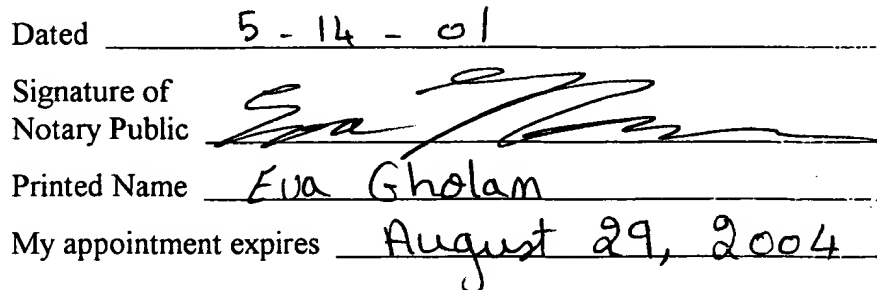 Dated 5 - 14 - 01
Signature of
Notary Public
Printed Name Eva Gholam
My appointment expires August 29, 2004